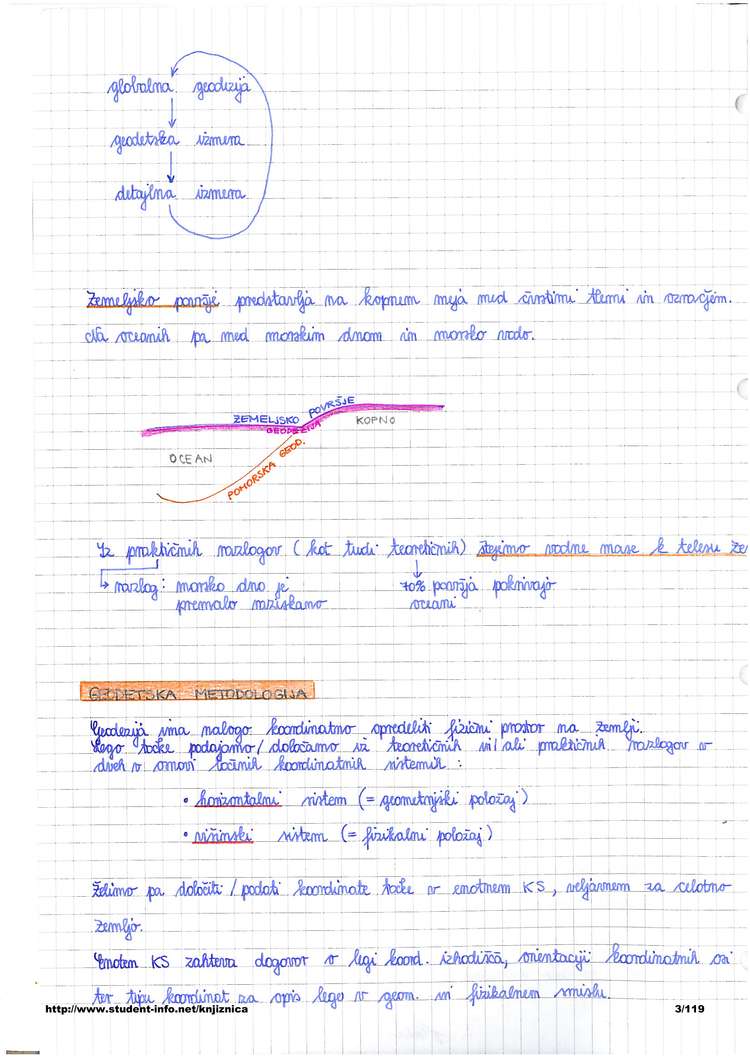 globalna geodezija
geodetska izmera
detajlna izmera
Zemeljsko površje predstavlja na kopnem meja med čvrstimi tlemi in ozračjem.
Na oceanih pa med morskim dnom in morsko vodo.
ZEMELJSKO POVRŠJE
GEODEZIJA
KOPNO
OCEAN
POMORSKA GEOD.
Iz praktičnih razlogov (kot tudi teoretičnih) štejemo vodne mase k telesu
razlog: morsko dno je
premalo raziskano
70% površja pokrivajo
oceani
GEODETSKA METODOLOGIJA
Geodezija ima nalogo koordinatno opredeliti fizični prostor na zemlji.
Lego točke podajamo/določamo iz teoretičnih in/ali praktičnih razlogov v
dveh v osnovi ločenih koordinatnih sistemih:
• horizontalni sistem (= geometrijski položaj)
• višinski sistem (= fizikalni položaj)
Želimo pa določiti / podati koordinate točke v enotnem KS, veljavnem za celotno
zemljo.
Enoten KS zahteva dogovor o legi koord. izhodišča, orientaciji koordinatnih osi
ter tipu koordinat za opis lege v geom. in fizikalnem smislu.
http://www.student-info.net/knjiznica
3/119